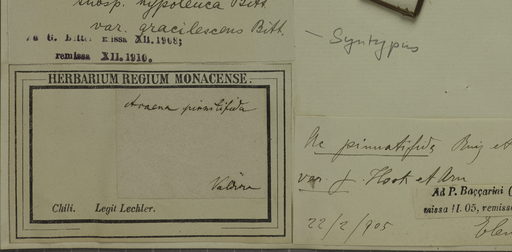 subsp. hypoleuca Bitt
var. gracilescens Bitt.
missa XII. 1908;
remissa XII. 1910.
HERBARIUM REGIUM MONACENSE.
Acaena pinnatifida
Valdivia
Chili. Legit Lechler.
— Syntypus
Ac pinnatifida Ruiz et
var. γ. Hook et Arn
Ad P. Baccarini (
missa II. 05, remissa
22/2/905